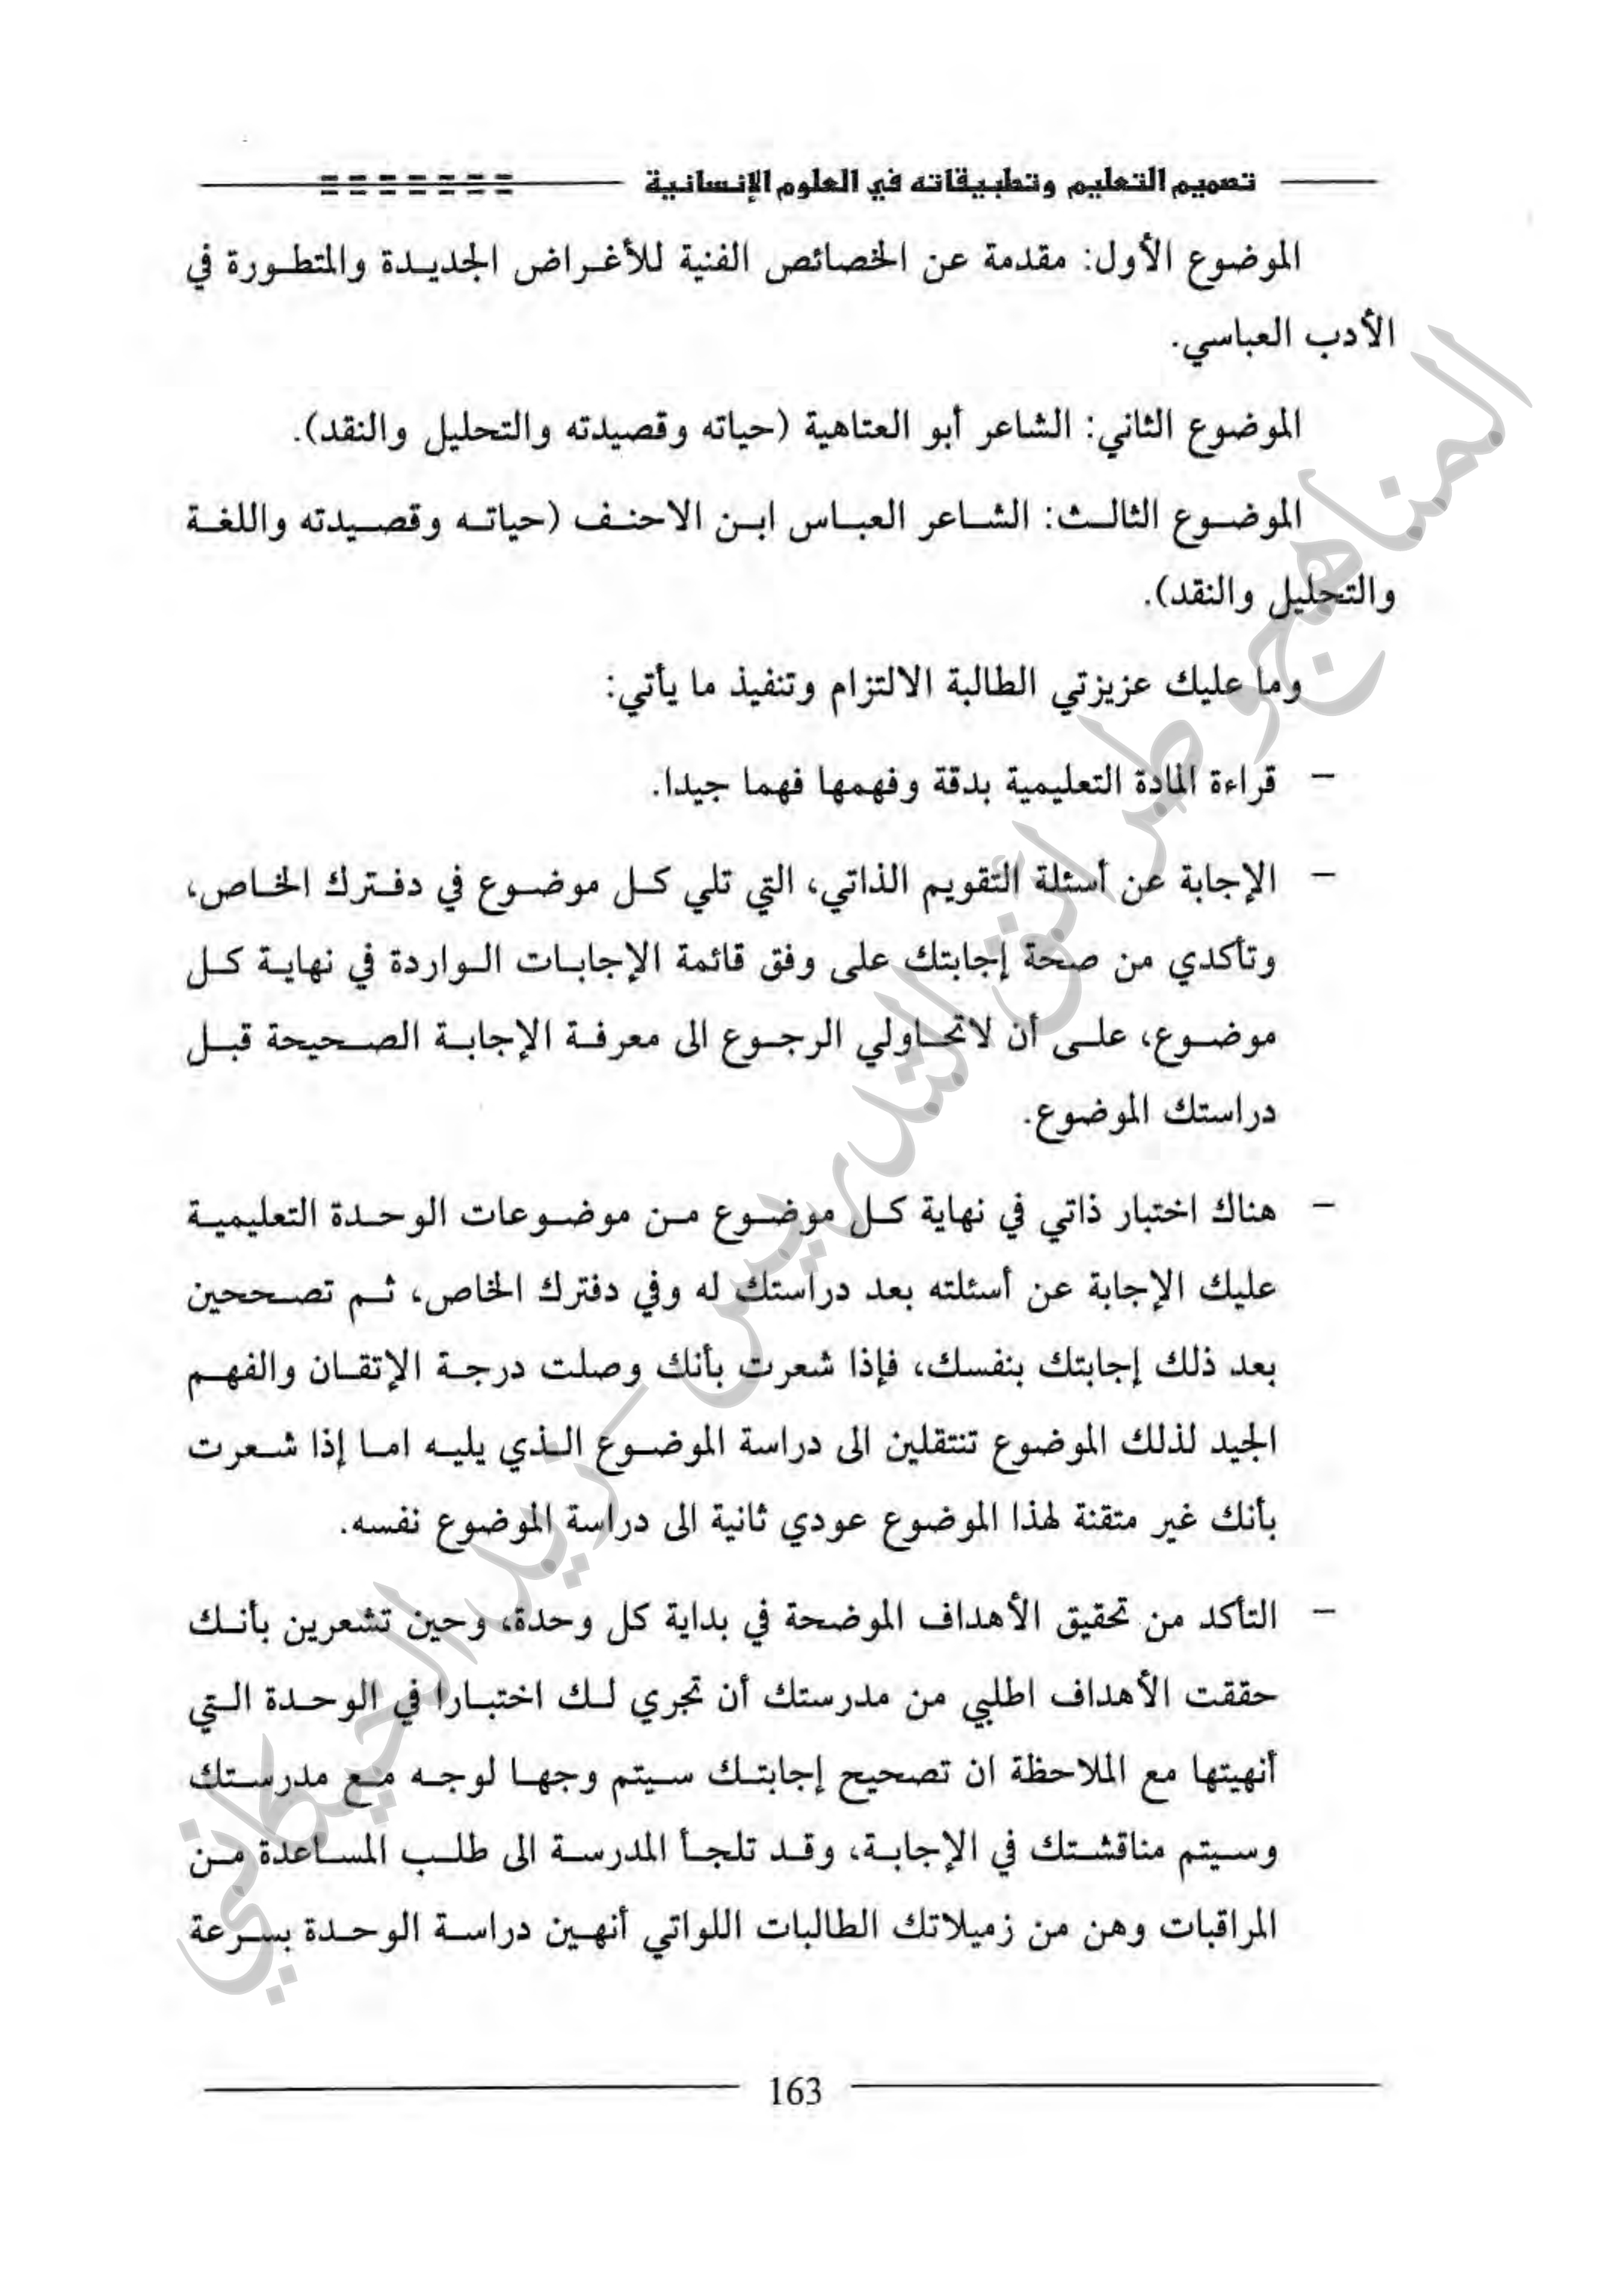 تصميم التعليم وتطبيقاته في العلوم الإنسانية
الموضوع الأول: مقدمة عن الخصائص الفنية للأغراض الجديدة والمتطورة في
الأدب العباسي.
الموضوع الثاني: الشاعر أبو العتاهية (حياته وقصيدته والتحليل والنقد).
الموضوع الثالث: الشاعر العباس ابن الاحنف (حياته وقصيدته واللغة
والتحليل والنقد).
وما عليك عزيزتي الطالبة الالتزام وتنفيذ ما يأتي:
– قراءة المادة التعليمية بدقة وفهمها فهما جيدا.
– الإجابة عن أسئلة التقويم الذاتي، التي تلي كل موضوع في دفترك الخاص،
وتأكدي من صحة إجابتك على وفق قائمة الإجابات الواردة في نهاية كل
موضوع، على أن لاتحاولي الرجوع الى معرفة الإجابة الصحيحة قبل
دراستك الموضوع.
– هناك اختبار ذاتي في نهاية كل موضوع من موضوعات الوحدة التعليمية
عليك الإجابة عن أسئلته بعد دراستك له وفي دفترك الخاص، ثم تصححين
بعد ذلك إجابتك بنفسك، فإذا شعرت بأنك وصلت درجة الإتقان والفهم
الجيد لذلك الموضوع تنتقلين الى دراسة الموضوع الذي يليه اما إذا شعرت
بأنك غير متقنة لهذا الموضوع عودي ثانية الى دراسة الموضوع نفسه.
– التأكد من تحقيق الأهداف الموضحة في بداية كل وحدة، وحين تشعرين بأنك
حققت الأهداف اطلبي من مدرستك أن تجري لك اختبارا في الوحدة التي
أنهيتها مع الملاحظة ان تصحيح إجابتك سيتم وجها لوجه مع مدرستك
وسيتم مناقشتك في الإجابة، وقد تلجأ المدرسة الى طلب المساعدة من
المراقبات وهن من زميلاتك الطالبات اللواتي أنهين دراسة الوحدة بسرعة
163
المناهج وطرائق التدريس - زيد الخيكاني